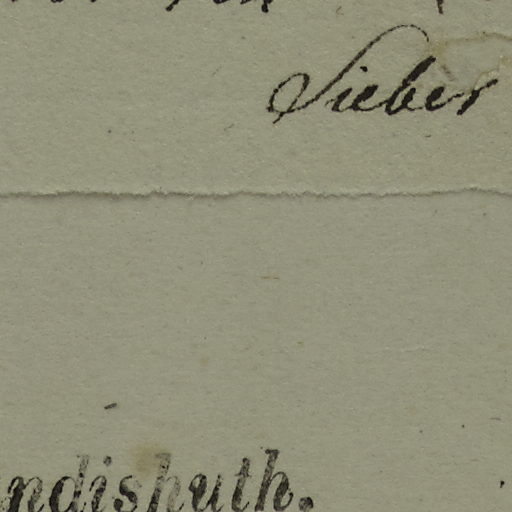 Sieber
ndishuth.